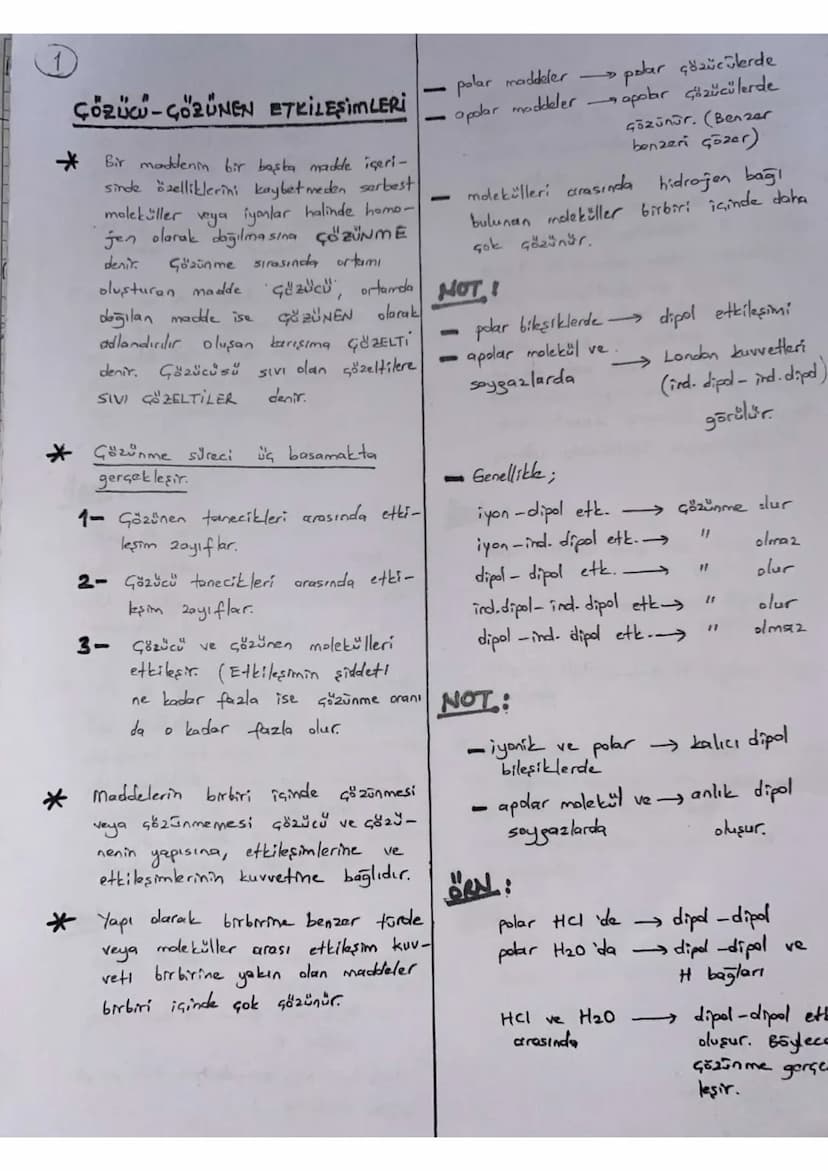 1
ÇÖZÜCÜ-ÇÖZÜNEN ETKİLEŞİMLERİ
* Bir maddenin bir başka madde içeri-
sinde özelliklerini kaybetmeden serbest
moleküller veya iyonlar halinde homo-
jen olarak dağılmasına ÇÖZÜNME
denir. Çözünme sırasında ortamı
oluşturan madde ÇÖZÜCÜ, ortamda
dağılan madde ise ÇÖZÜNEN olarak
adlandırılır oluşan karışıma ÇÖZELTİ
denir. Çözücüsü sıvı olan çözeltilere
SIVI ÇÖZELTİLER denir.
* Çözünme süreci üç basamakta
gerçekleşir.
1- Çözünen tanecikleri arasında etki-
leşim zayıflar.
2- Çözücü tanecikleri arasında etki-
leşim zayıflar.
3- Çözücü ve çözünen molekülleri
etkileşir. (Etkileşimin şiddeti
ne kadar fazla ise çözünme oranı
da o kadar fazla olur.
* Maddelerin birbiri içinde çözünmesi
veya çözünmemesi çözücü ve çözü-
nenin yapısına, etkileşimlerine ve
etkileşimlerinin kuvvetine bağlıdır.
* Yapı olarak birbirine benzer türde
veya moleküller arası etkileşim kuv-
veti birbirine yakın olan maddeler
birbiri içinde çok çözünür.
- polar maddeler → polar çözücülerde
- apolar maddeler → apolar çözücülerde
çözünür. (Benzer
benzeri çözer)
- molekülleri arasında hidrojen bağı
bulunan moleküller birbiri içinde daha
çok çözünür.
NOT!
- polar bileşiklerde → dipol etkileşimi
- apolar molekül ve → London kuvvetleri
soygazlarda (ind. dipol - ind. dipol)
görülür.
- Genellikle;
iyon-dipol etk. → çözünme olur
iyon-ind. dipol etk. → " olmaz
dipol-dipol etk. → " olur
ind.dipol-ind. dipol etk → " olur
dipol-ind. dipol etk. → " olmaz
NOT:
- iyonik ve polar → kalıcı dipol
bileşiklerde
- apolar molekül ve → anlık dipol
soygazlarda oluşur.
ÖRN:
polar HCl 'de → dipol-dipol
polar H2O 'da → dipol-dipol ve
H bağları
HCl ve H2O → dipol-dipol etk
arasında oluşur. Böylece
çözünme gerçe
leşir.